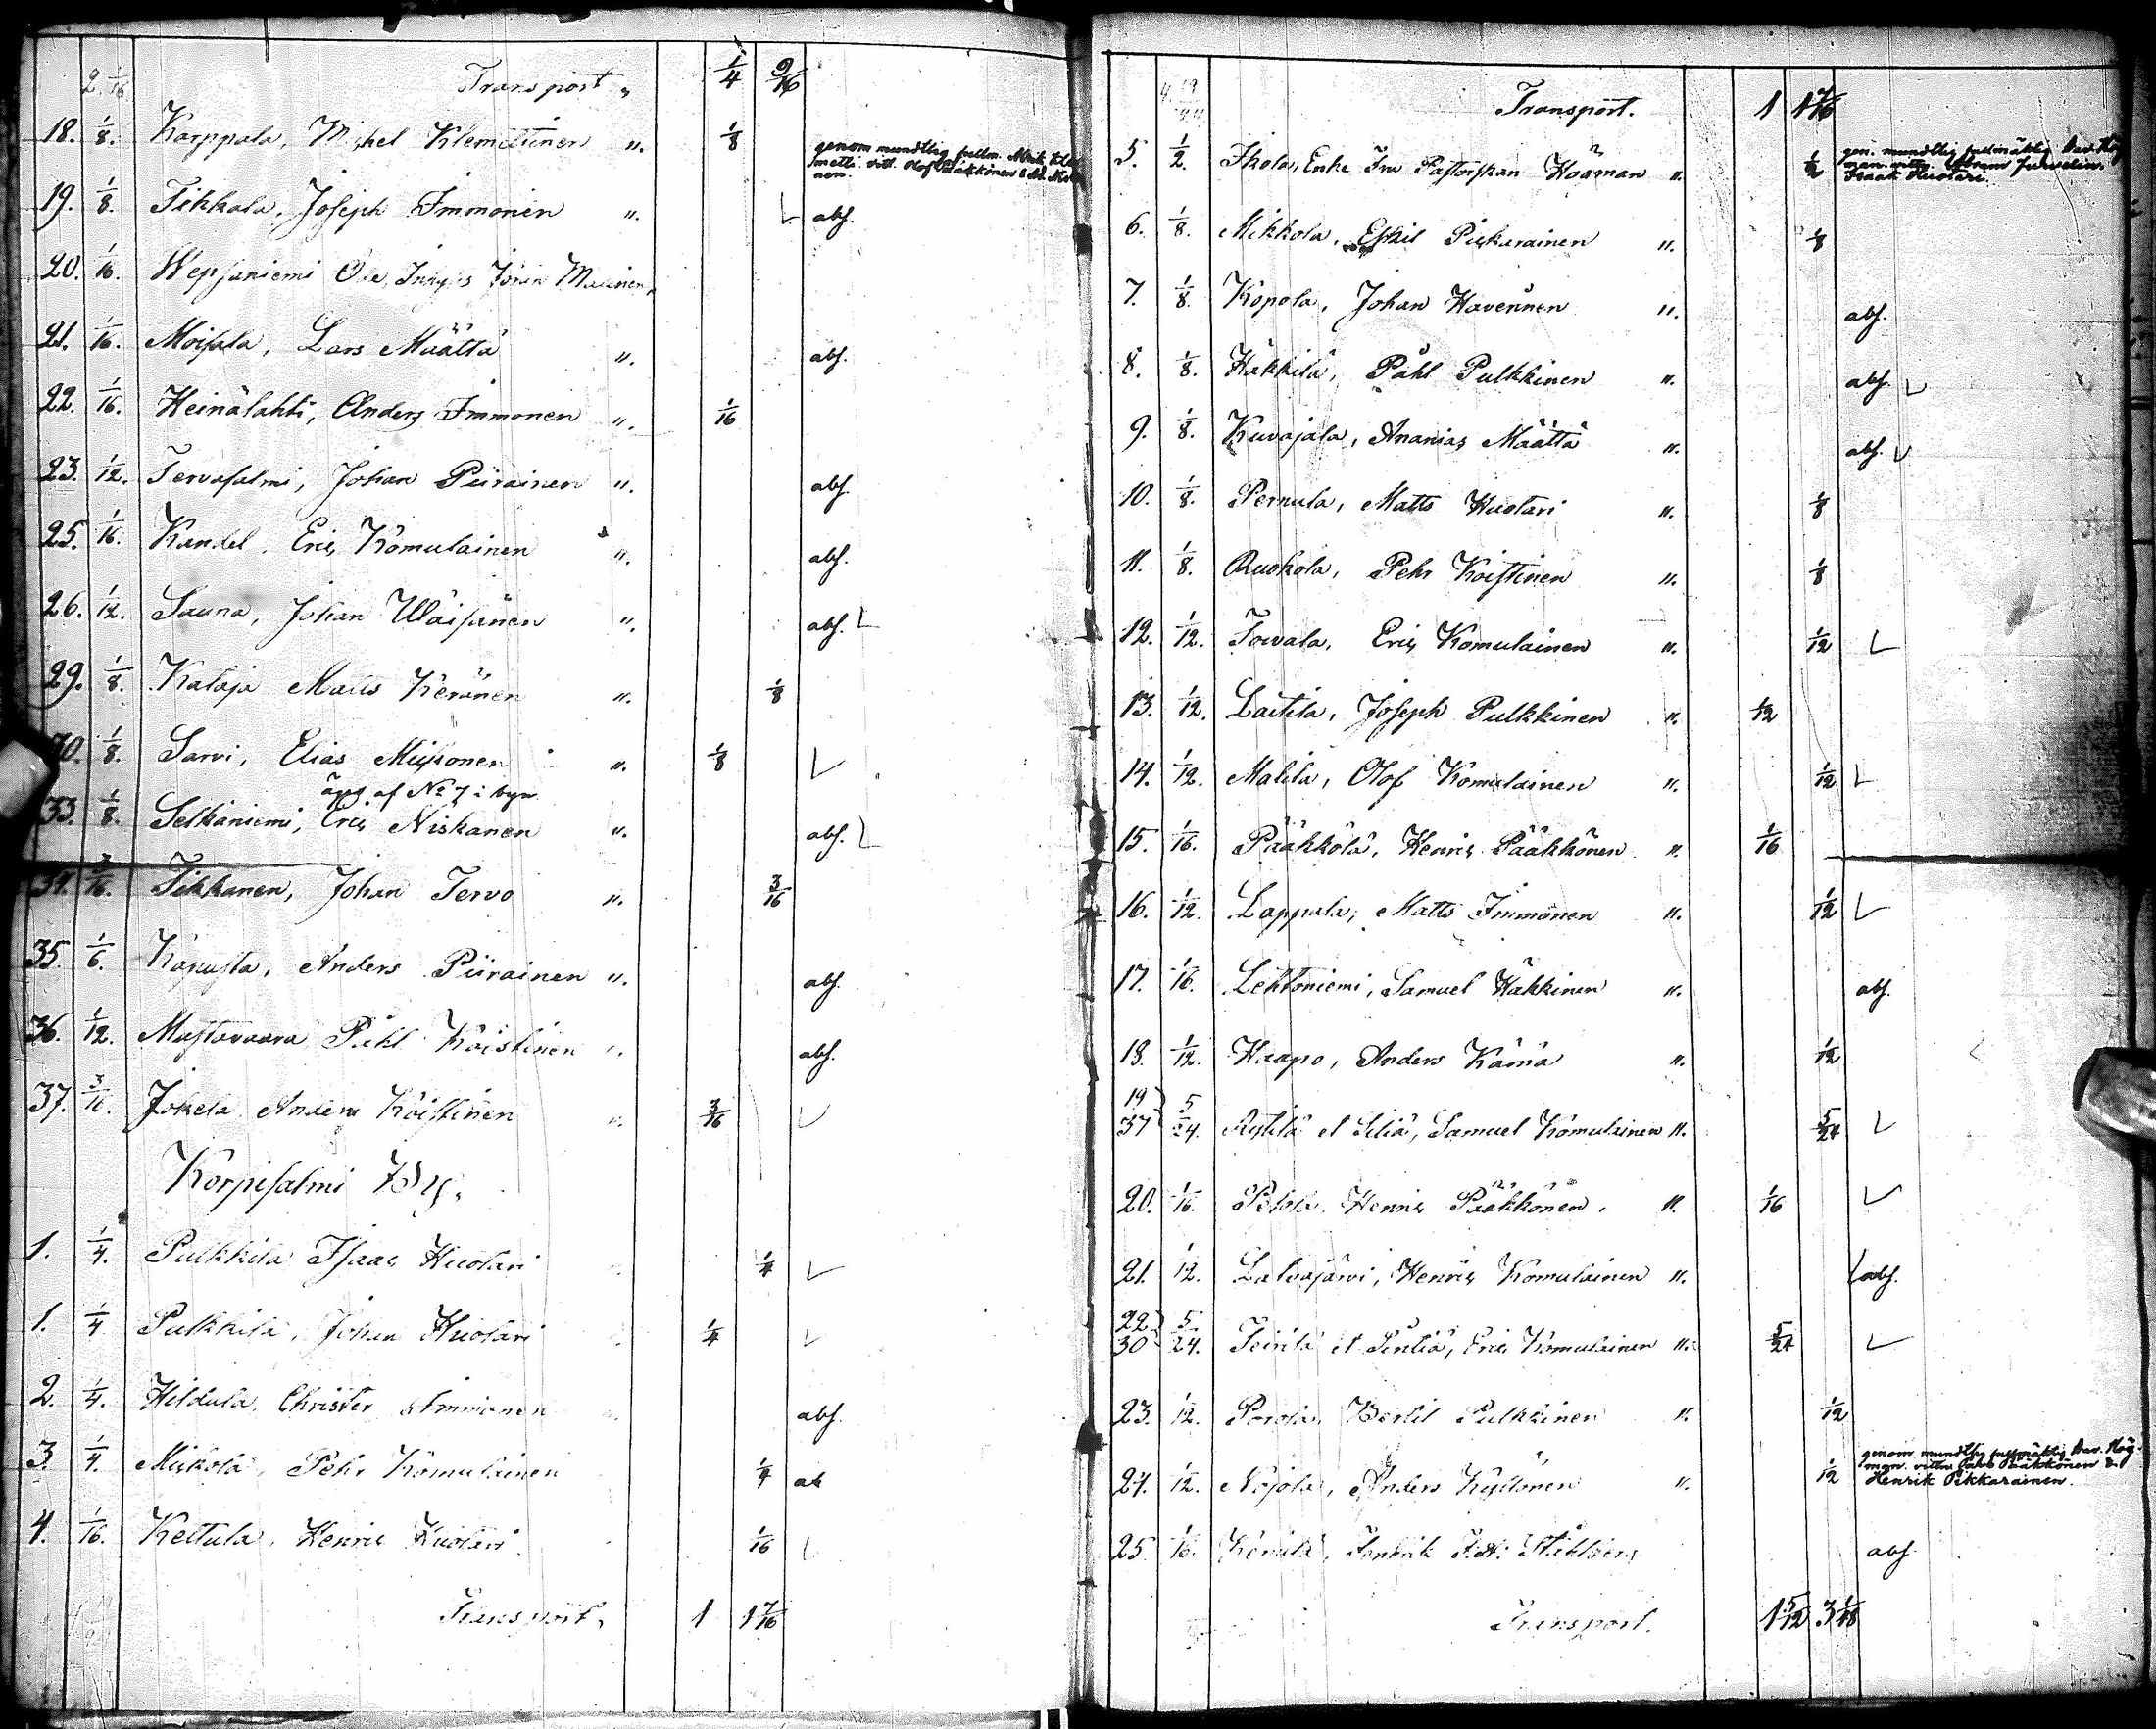 2 1/16 Transport " 1/4 9/16
18. 1/8. Karppala, Michel Klemettinen ". 1/8 genom mundtlig fullm.
19. 1/8. Tikkala, Joseph Immonen ". abs.
20. 1/16. Wepsäniemi Öde,
21. 1/16. Moisala, Lars Määttä ". abs.
22. 1/16. Heinälahti, Anders Immonen ". 1/16
23. 1/12. Tervasalmi, Johan Piirainen ". abs.
25. 1/16. Kandel. Eric Komulainen ". abs.
26. 1/12. Sauna, Johan Wäisänen ". abs.
29. 1/8. Kataja Matts Keränen ". 1/8
30. 1/8. Sarvi, Elias ". 1/8
af No 7 i byn
33. 1/8. Selkäniemi, Eric Niskanen ". abs.
34. 3/16. Tikkanen, Johan Tervo ". 3/16
35. 1/6. Kanusta, Anders Piirainen ". abs.
36. 1/12. Mustavaara Påhl Koistinen ". abs.
37. 3/16. Jokela Anders Koistinen ". 3/16
Korpisalmi By.
1. 1/4. Pulkkila Isaac Huotari 1/4
1. 1/4 Pulkkila, Johan Huotari 1/4
2. 1/4. Hildula, Christer Immonen abs.
3. 1/4. Mikkola, Pehr Komulainen 1/4 ab
4. 1/16. Kettula, Henric Huotari 1/16
Transport, 1 1 7/16
Transport. 1 1 7/16
5. 1/2. Ikola, Enke Fru Pastorskan Hogman ". 1/2 gen. mundtlig fullmäktig
Isaak Huotari.
6. 1/8. Mikkola, Eskil Pickarainen ". 1/8
7. 1/8. Kopola, Johan Haverinen ". abs.
8. 1/8. Häkkilä, Påhl Pulkkinen ". abs.
9. 1/8. Kuvajala, Ananias Määttä ". abs.
10. 1/8. Pernula, Matts Huotari ". 1/8
11. 1/8. Ruokola, Pehr Koistinen ". 1/8
12. 1/12. Towala, Eric Komulainen ". 1/12
13. 1/12. Laitila, Joseph Pulkkinen ". 1/12
14. 1/12. Malila, Olof Komulainen ". 1/12
15. 1/16. Pääkkölä, Henric Pääkkönen ". 1/16
16. 1/12. Lappala, Matts Immonen ". 1/12
17. 1/16. Lehtoniemi, Samuel Häkkinen ". abs.
18. 1/12. Haapo, Anders Kämä ". 1/12
19 } 5
37 24. Rytilä et Siliä, Samuel Komulainen ". 5/24
20. 1/16. Pekkla, Henric Pääkkönen, ". 1/16
21. 1/12. Latvajärvi, Henric Komulainen ". abs.
22 } 5
30 24. et Pentiä, Eric Komulainen ". 5/24
23. 1/12. Porola, Bertil Pulkkinen ". 1/12
24. 1/12. Nojola, Anders Kyllönen ". 1/12 genom mundtlig fullmäktig
Pääkkönen &
Henrik Pikkarainen.
25. 1/16. Ståhlberg abs.
Transport. 1 5/12 3 1/48